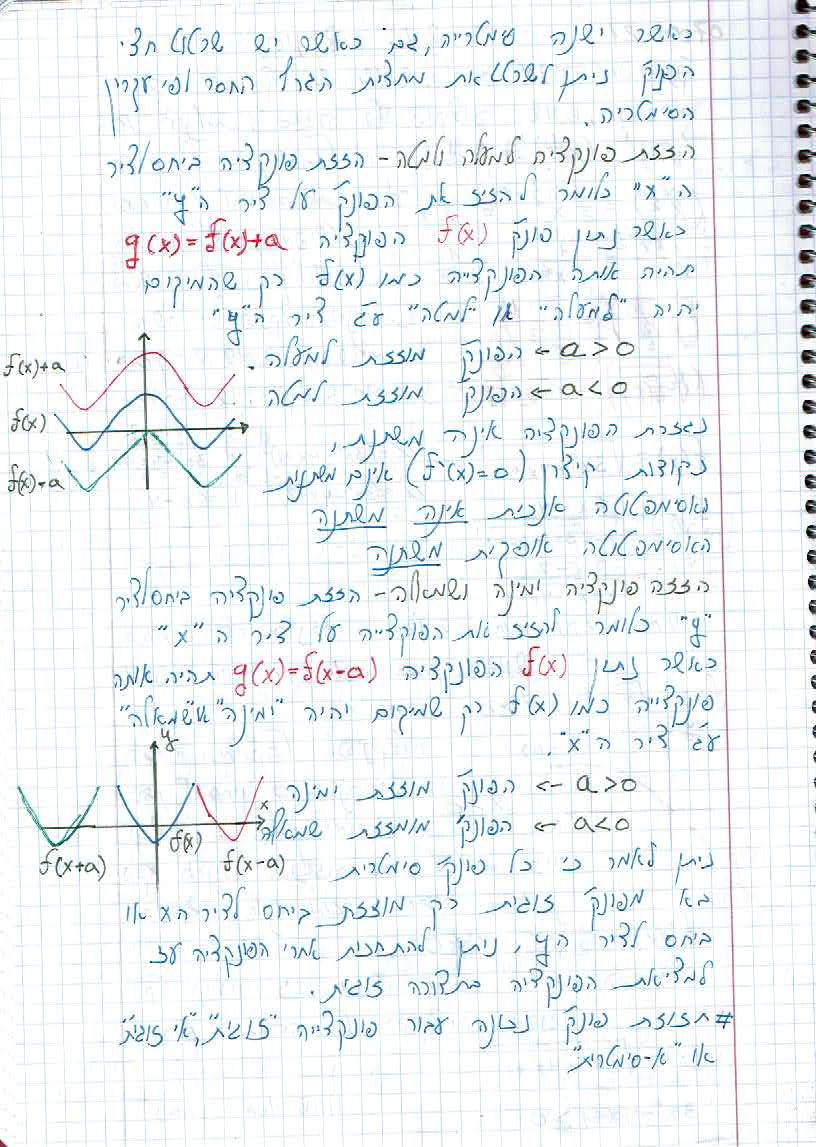 כאשר ישנה סימטרייה, גם כאשר יש שרטוט חצי
הפונק' ניתן לשרטט את מחצית הגרף החסר לפי עקרון
הסימטריה.
הזזת פונקציה למעלה ולמטה - הזזת פונקציה ביחס לציר
ה"x" כלומר להזיז את הפונק' על ציר ה"y"
כאשר נתון פונק' f(x) הפוקציה g(x)=f(x)+a
תהיה אותה הפונקצייה כמו f(x) רק שהמיקום
יהיה "למעלה" או "למטה" ע"ג ציר ה"y"
a>0 ← הפונק' מוזזת למעלה.
a<0 ← הפונק' מוזזת למטה
f(x)+a
f(x)
f(x)-a
נגזרת הפונקציה אינה משתנת,
נקודות קיצון (f'(x)=0) אינם משתנות
האסימפטוטה אנכית אינה משתנה
האסימפטוטה אופקית משתנה
הזזה פונקציה ימינה ושמאלה - הזזת פונקציה ביחס לציר
"y" כלומר להזיז את הפוקצייה על ציר ה"x"
כאשר נתון f(x) הפונקציה g(x)=f(x-a) תהיה אותה
פונקצייה כמו f(x) רק שמיקום יהיה "ימינה" או "שמאלה"
ע"ג ציר ה"x".
a>0 ← הפונק' מוזזת ימינה
a<0 ← הפונק' מוזזת שמאלה
y
x
f(x+a)
f(x)
f(x-a)
ניתן לאמר כי כל פונק' סימטרית
בא מפונק' זוגית רק מוזזת ביחס לציר הx או
ביחס לציר הy, ניתן להתחקות אחרי הפונקציה עד
למציאת הפונקציה בתצורה זוגית.
# תזוזת פונק' נכונה עבור פונקצייה "זוגית", "אי זוגית"
או "א-סימטרית"